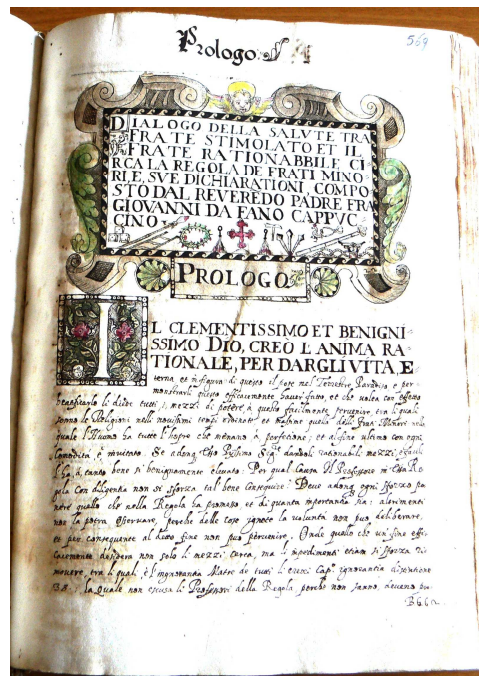 Prologo
569
DIALOGO DELLA SALUTE TRA
FRATE STIMOLATO ET IL
FRATE RATIONABBILE CI
RCA LA REGOLA DE FRATI MINO
RI E, SVE DICHIARATIONI, COMPO
STO DAL REVERĒDO PADRE FRA
GIOVANNI DA FANO CAPPVC
CINO
PROLOGO
IL CLEMENTISSIMO ET BENIGNI=
SSIMO DIO, CREÒ L'ANIMA RA=
TIONALE, PER DARGLI VITA E
terna et in figura di questo il pose nel Terrestre Paradiso e per
monstrarli questo efficacemente haver fatto, et che volea con effetto
beatificarlo li diede tutti i mezzi di potere a questo facilmente pervenire, tra li quali
sonno le Religioni nelli novissimi tempi et maxime quella delli Frati Minori nella
quale l'Huomo ha tutte l'hopre che menano à perfetione; et al fine ultimo con ogni
comodità è invitato. Se adonq;
li ha à tanto bene si benignamente elevato. Per qual Causa Il Professore Re
gola con diligentia non si sforza tal bene conseguire? Deve adonq; ogni sforzo po
nere quello che nella Regola ha promesso et di quanta importanza sia; alerimenti
non la potra observare, perche delle cose ignote la voluntà non puo deliberare,
et per consequente al dicto fine non può pervenire. Onde quello che un fine effi
cacemente desidera non solo li mezzi cerca, ma l'impedimenti etiam si sforza ri
movere, tra li quali, è l'ignorantia Matre de tutti li errori Cap.º ignorantia distintione
38; la quale non excusa li Professori della Regola, perche non sanno,